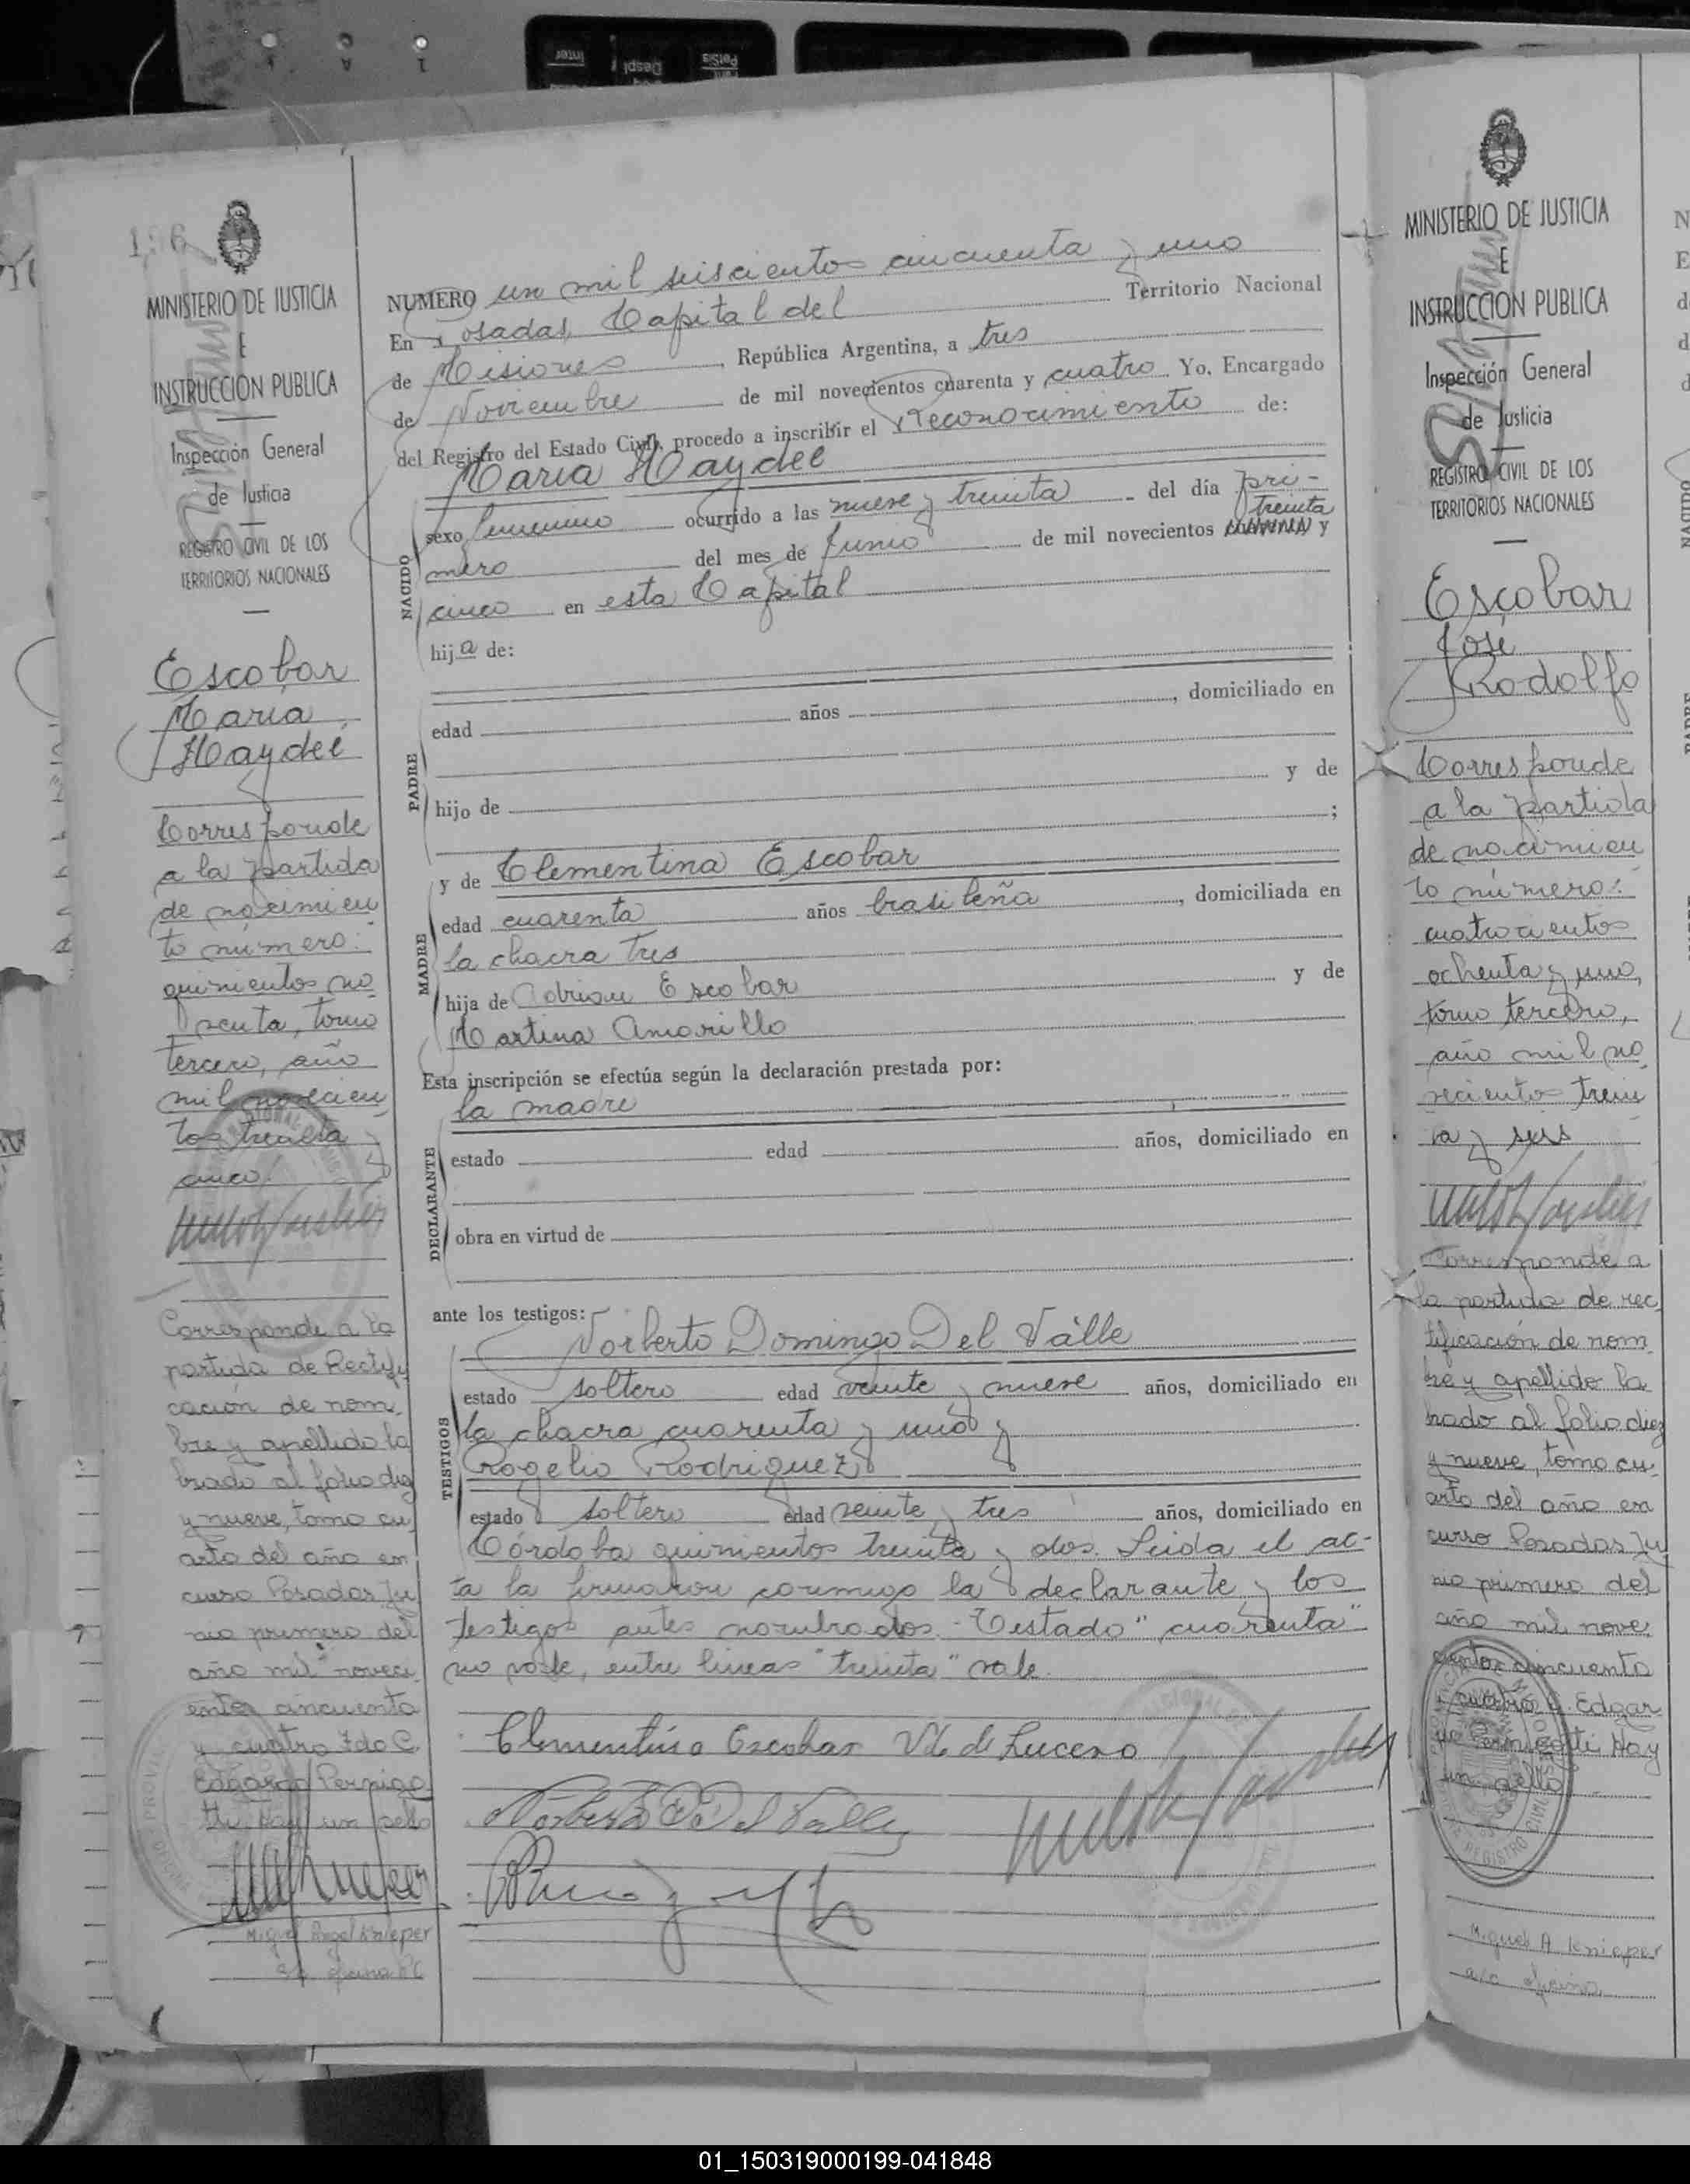 Inter
Despl
PetSis
196
MINISTERIO DE JUSTICIA
E
INSTRUCCION PUBLICA
Inspección General
de Justicia
REGISTRO CIVIL DE LOS
TERRITORIOS NACIONALES
Escobar
Maria
Haydeé
Corresponde
a la partida
de nacimien
to número:
quinientos no
venta, tomo
tercero, año
mil novecien
tos treinta y
cinco.
Corresponde a la
partida de Rectifi
cación de nom
bre y apellido la
brado al folio diez
y nueve, tomo cu
arto del año en
curso Posadas Ju
nio primero del
año mil noveci
entos cincuenta
y cuatro Fdo C.
Edgardo Pernigo
tti. Hay un sello
Miguel Angel Knieper
a/c oficina RC
NUMERO un mil seiscientos cincuenta y uno
En Posadas, Capital del Territorio Nacional
de Misiones, República Argentina, a tres
de Noviembre de mil novecientos cuarenta y cuatro Yo, Encargado
del Registro del Estado Civil, procedo a inscribir el Reconocimiento de:
Maria Haydeé
NACIDO
sexo femenino ocurrido a las nueve y treinta del día pri-
treinta
mero del mes de Junio de mil novecientos cuarenta y
cinco en esta Capital
hija de:
PADRE
edad años , domiciliado en
hijo de y de
;
y de Clementina Escobar
MADRE
edad cuarenta años brasileña, domiciliada en
la chacra tres
hija de Adrian Escobar y de
Martina Amarillo
Esta inscripción se efectúa según la declaración prestada por:
la madre
DECLARANTE
estado edad años, domiciliado en
obra en virtud de
ante los testigos:
Norberto Domingo Del Válle
TESTIGOS
estado soltero edad veinte y nueve años, domiciliado en
la chacra cuarenta y uno y
Rogelio Rodriguez
estado soltero edad veinte y tres años, domiciliado en
Córdoba quinientos treinta y dos. Leida el ac-
ta la firmaron conmigo la declarante y los
testigos antes nombrados.- Testado "cuarenta"
no vale, entre lineas "treinta" vale.
Clementina Escobar Vda de Lucero
Norberto D Del Valle
MINISTERIO DE JUSTICIA
E
INSTRUCCION PUBLICA
Inspección General
de Justicia
REGISTRO CIVIL DE LOS
TERRITORIOS NACIONALES
Escobar
José
Rodolfo
Corresponde
a la partida
de nacimien
to número:
cuatrocientos
ochenta y uno,
tomo tercero,
año mil no
vecientos trein
ta y seis
Corresponde a
la partida de rec
tificación de nom
bre y apellido la
brado al folio diez
y nueve, tomo cu
arto del año en
curso Posadas Ju
nio primero del
año mil nove
cientos cincuenta
y cuatro C. Edgar
do Pernigotti Hay
un sello
Miguel A Knieper
a/c oficina
NACIDO
01_150319000199-041848